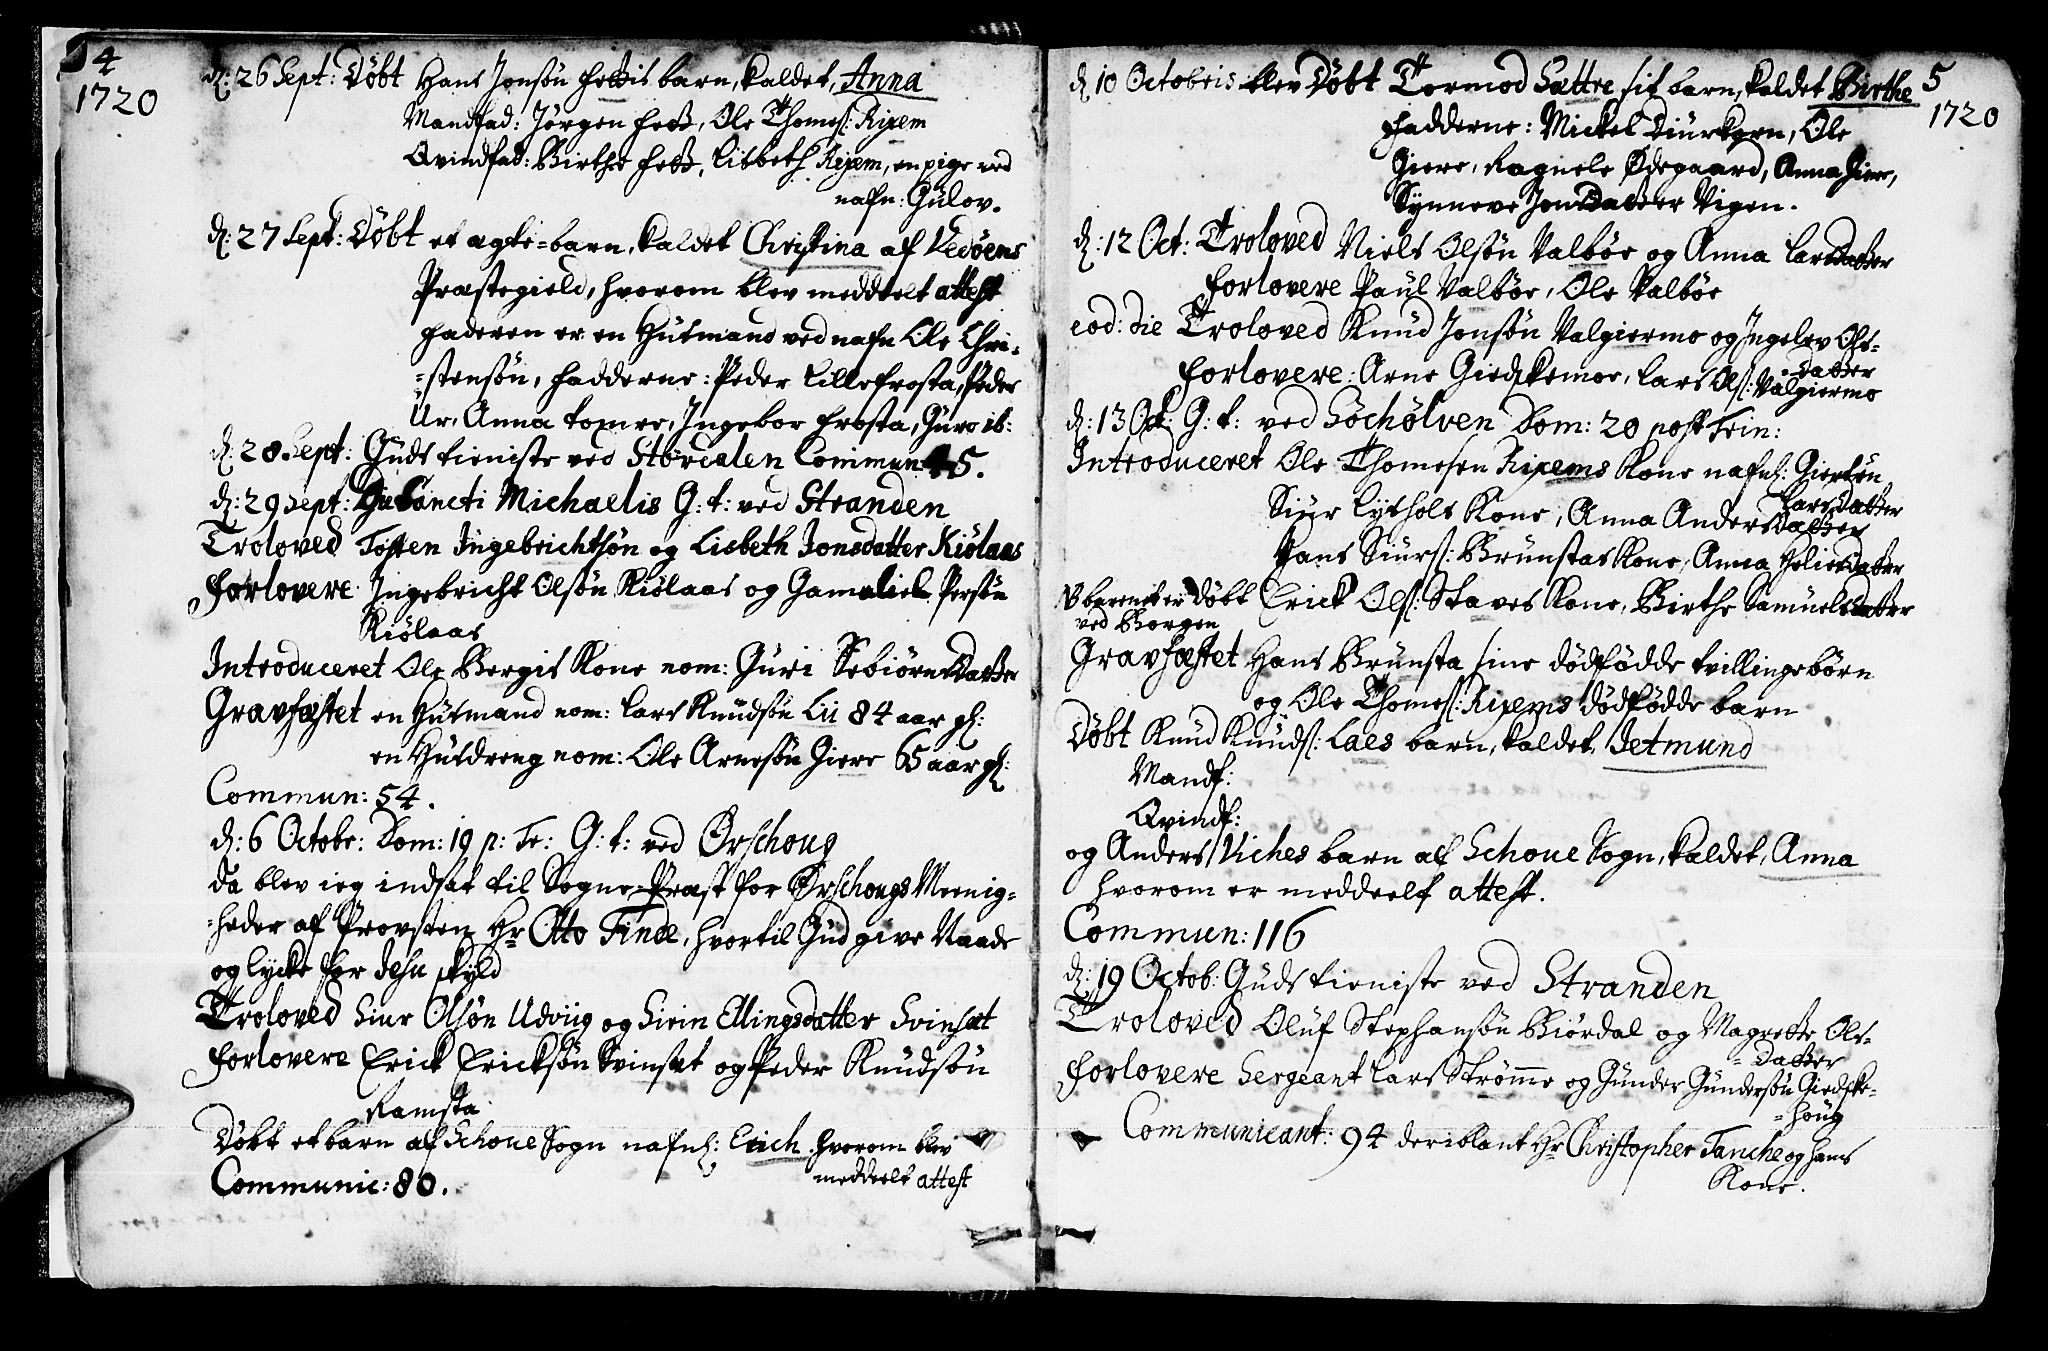 4
1720
d: 26 Sept: Døbt Hans Jonsøn Fettis barn, kaldet, Anna
Mandfad: Jørgen Fett, Ole Thomes: Ripem
Qvindfad: Birthe Fett, Lisbeth Ripem, en pige ved
nafn: Gulov.
d: 27 Sept: Døbt et ægte-barn, kaldet Christina af Vedøens
Præstegield, hvorom blev meddeelt attest
Faderen er en Huusmand ved nafn Ole Chri-
-stensøn, Fadderne: Peder Lillefrosta, Peder
Ur, Anna Tomre, Ingebor Frosta, Guro ib:
d: 28 Sept: Guds tieniste ved Stordalen Commun: 45.
d: 29 Sept: Sancti Michaelis G: t: ved Stranden
Troloved Tosten Ingebrichtsøn og Lisbeth Jonsdatter Kiølaas
Forlovere Ingebricht Olsøn Kiølaas og Gamaliel Persøn
Kiølaas
Introduceret Ole Bergis Kone nom: Guri Sebiørnsdatter
Gravfæstet en Huusmand nom: Lars Knudsøn Lii 84 aar gl:
en Huusdreng nom: Ole Arnesøn Giere 65 aar gl:
Commun: 54.
d: 6 Octobr: Dom: 19 p: Tr: G: t: ved Ørschoug
Da blev ieg indsat til Sogne-Præst for Ørschougs Meenig-
-heder af Provsten Hr Otto Finde, hvortil Gud give Naade
og lycke for Jesu skyld
Troloved Siur Olsøn Udviig og Sirin Ellingsdatter Svinsæt
Forlovere Erick Ericksøn Svinsæt og Peder Knudsøn
Ramsta
Døbt et barn af Schoue Sogn nafnl: Erich hvorom blev
meddeelt attest
Communic: 80.
5
1720
d 10 Octobris blev Døbt Tormod Sættre sit barn, kaldet Birthe
Fadderne: Mickel Diurkorn, Ole
Giere, Ragnele Ødegaard, Anna Giere,
Synneve Jonsdatter Vigen.
d: 12 Oct: Troloved Niels Olsøn Valbøe og Anna Larsdatter
Forlovere Paul Valbøe, Ole Valbøe
eod: die Troloved Knud Jonsøn Valgiermo og Ingelev Ols-
-datter
Forlovere: Arne Giedskemoe, Lars Ols: Valgiermo
d: 13 Oct: G: t: ved Søchølven Dom: 20 post Trin:
Introduceret Ole Thomesen Ripems Kone nafnl: Giertrøn
Larsdatter
Siur Lyshols Kone, Anna Andersdatter
Hans Siurs: Brunstas Kone, Anna Heliesdatter
barnet er døbt Erick Ols: Staves Kone, Birthe Samuelsdatter
ved Borgen
Gravfæstet Hans Brunsta sine dødfødde tvillingebørn
og Ole Thomes: Ripems dødfødde barn
Døbt Knud Knuds: Laes barn, kaldet, Jetmund
Mandf:
Qvindf:
og Anders Viches barn af Schoue Sogn, kaldet, Anna
hvorom er meddeelt attest.
Commun: 116
d: 19 Octob: Guds tieniste ved Stranden
Troloved Oluf Stephansøn Biørdal og Magrette Ols-
-datter
Forlovere Sergeant Lars Strømme og Gunder Gundersøn Giedske-
-houg
Communicant: 94 deriblant Hr Christopher Tanche og hans
Kone.